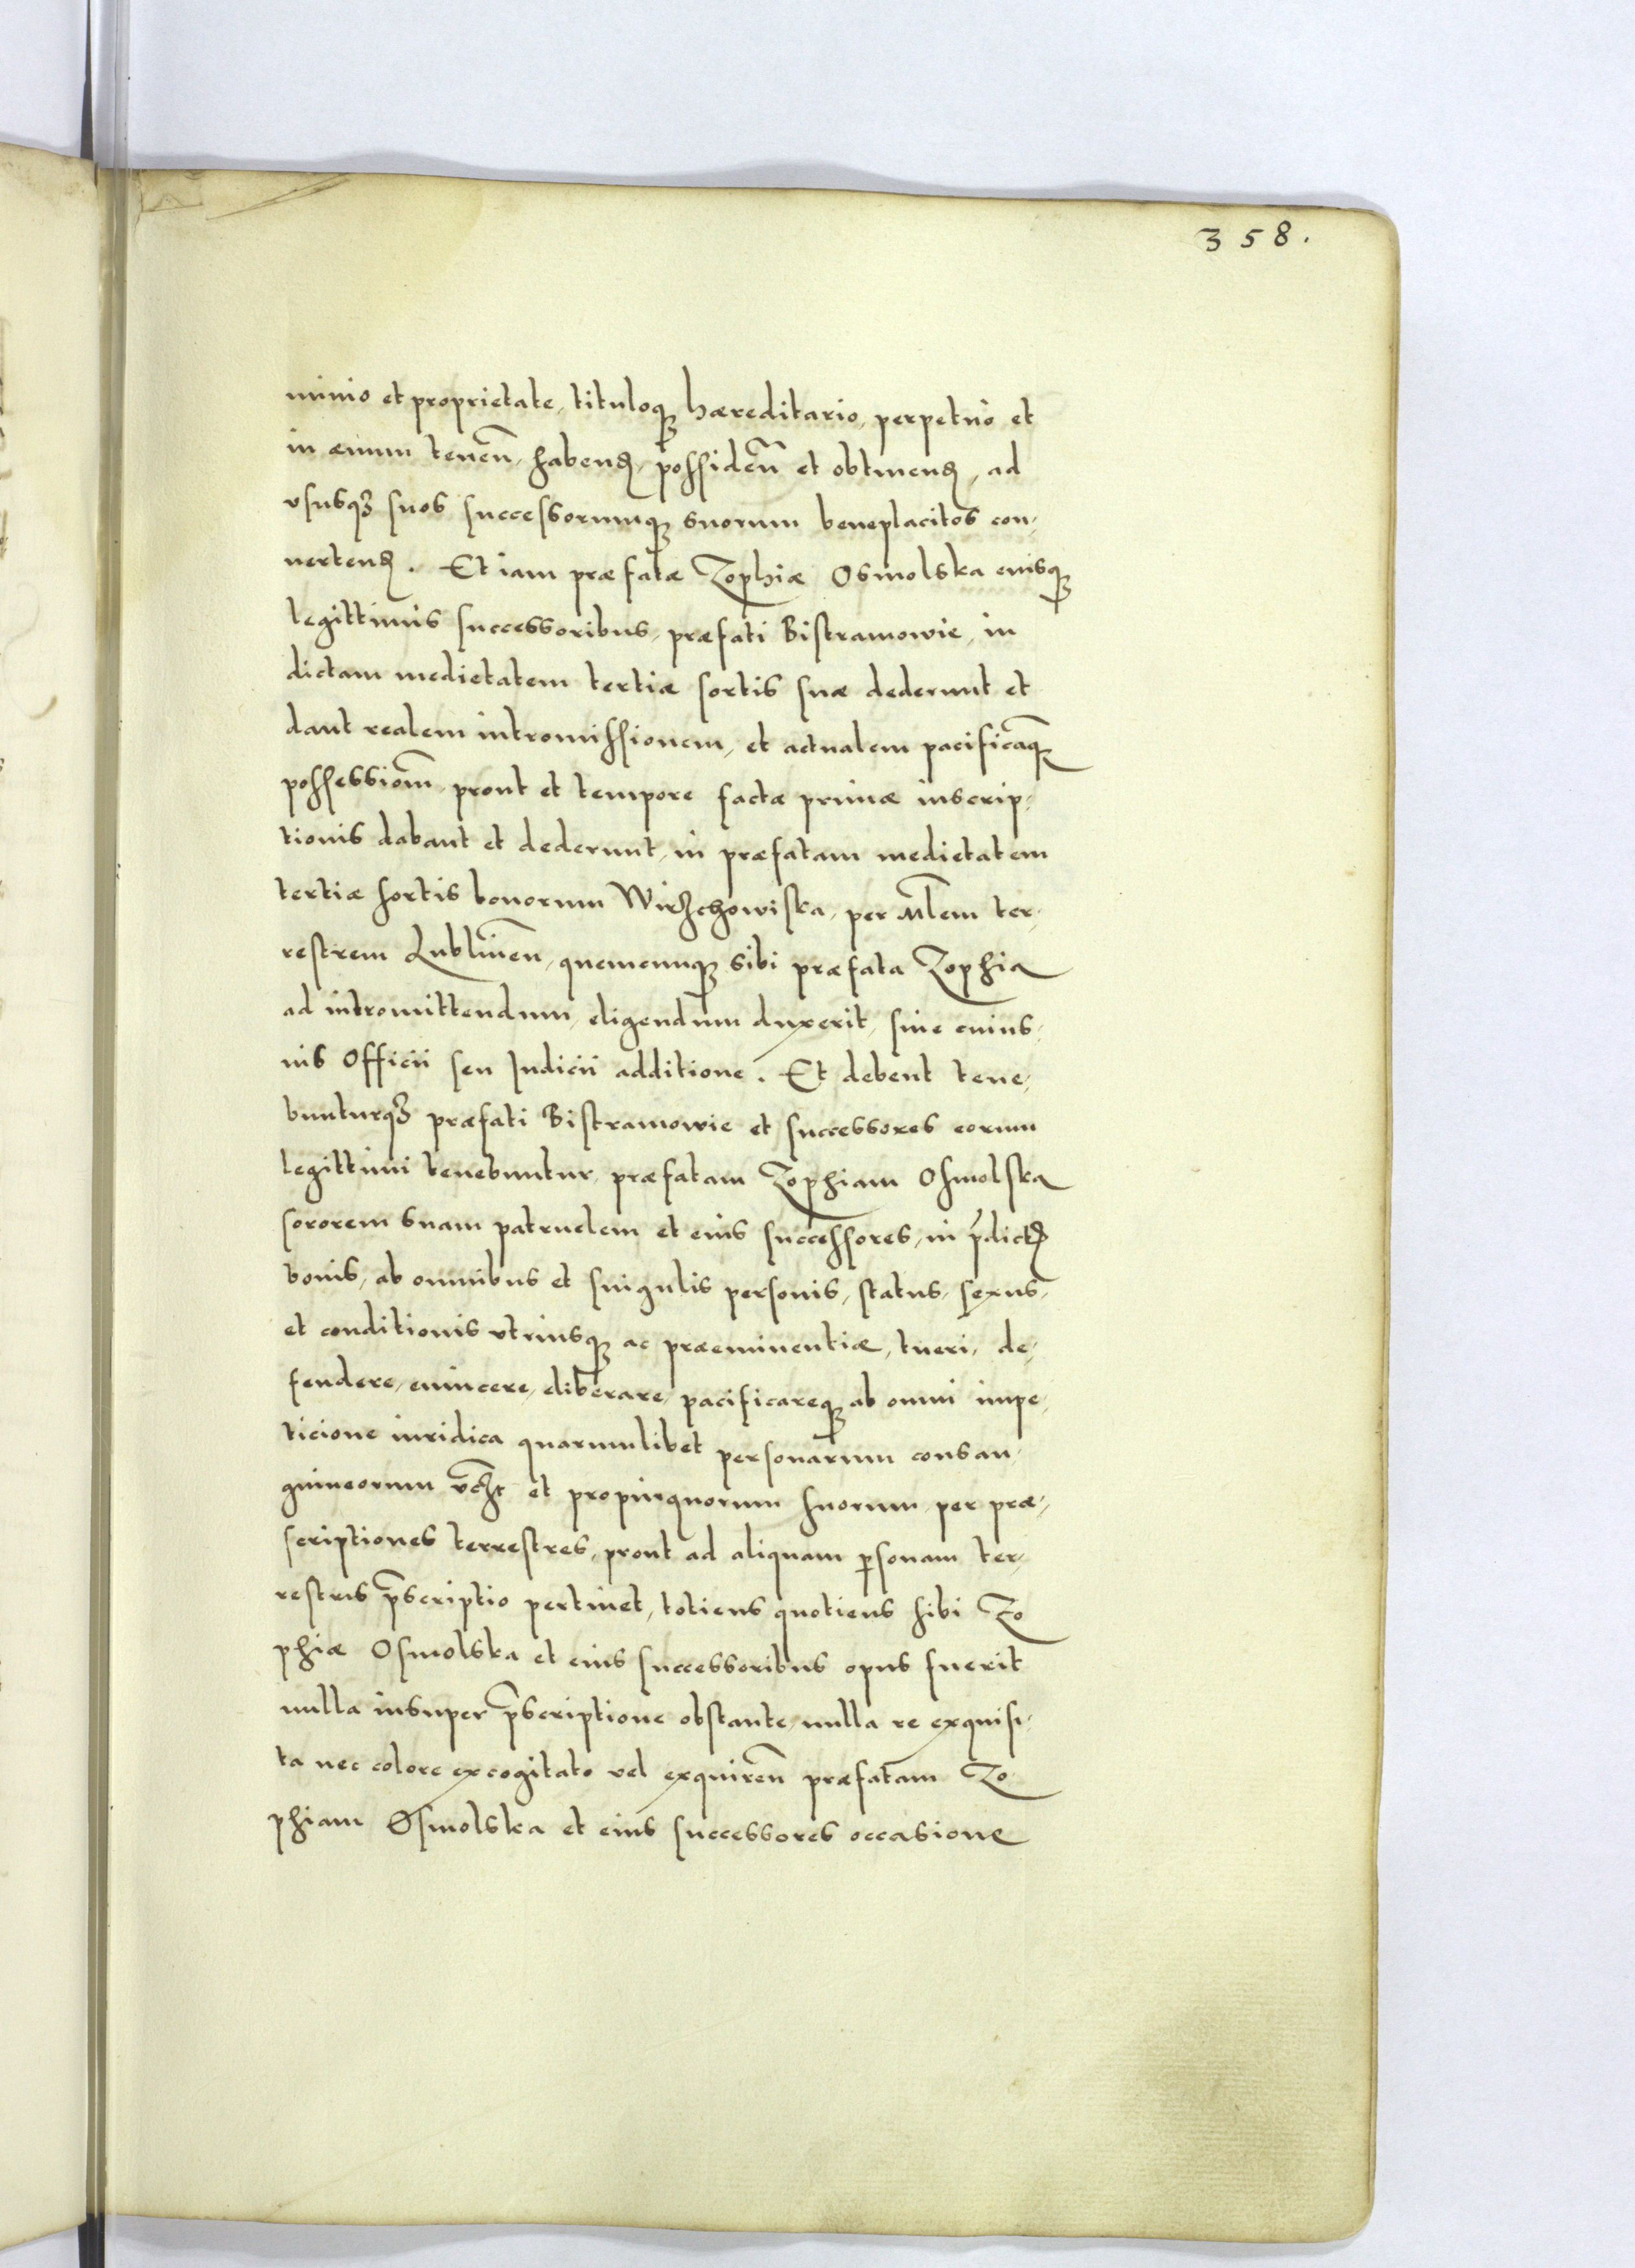 358.
minio et proprietate, tituloq3 haereditario, perpetuo et
in aeuum tenen̄, habend, possiden̄ et obtinend, ad
vsusq3 suos successorumq3 suorum beneplacitos con-
uertend. Et iam praefatae Zophiae Osmolska eiusq3
legittimis successoribus, praefati Bistramowie, in
dictam medietatem tertiae sortis suae dederunt et
dant realem intromissionem, et actualem pacificāq3
possessiom̄, prout et tempore factae primae inscrip-
tionis dabant et dederunt, in praefatam medietatem
tertiae sortis bonorum Wirzchowiska, per Mlēm ter-
restrem Lublinen̄, quemcunq3 sibi praefata Zophia
ad intromittendum, eligendum duxerit, sine cuius-
uis Officii seu Iudicii additione. Et debent tene-
bunturq3 praefati Bistramowie et successores eorum
legittimi tenebuntur, praefatam Zophiam Osmolska
sororem suam patruelem et eius successores, in p̄dict
bonis, ab omnibus et singulis personis, status, sexus,
et conditionis vtriusq3 ac praeeminentiae, tueri, de-
fendere, euincere, eliberare, pacificareq3 ab omni impe-
ticione iuridica quarumlibet personarum consan-
guineorum et propinquorum suorum, per prae-
scriptiones terrestres, prout ad aliquam p̄sonam ter-
restris p̄scriptio pertinet, totiens quotiens sibi Zo
phiae Osmolska et eius successoribus opus fuerit
nulla insuper p̄scriptione obstante, nulla re exquisi-
ta nec colore excogitato vel exquiren̄ praefatam Zo
phiam Osmolska et eius successores occasione